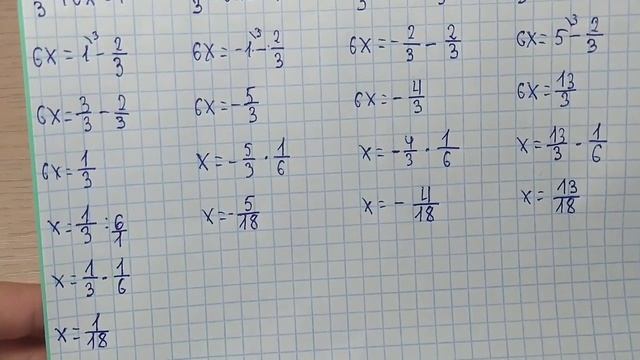 6x = 1 ³ - 2/3
6x = 3/3 - 2/3
6x = 1/3
x = 1/3 : 6/1
x = 1/3 · 1/6
x = 1/18
6x = -1 ³ - 2/3
6x = - 5/3
x = - 5/3 · 1/6
x = - 5/18
6x = - 2/3 - 2/3
6x = - 4/3
x = - 4/3 · 1/6
x = - 4/18
6x = 5 ³ - 2/3
6x = 13/3
x = 13/3 · 1/6
x = 13/18